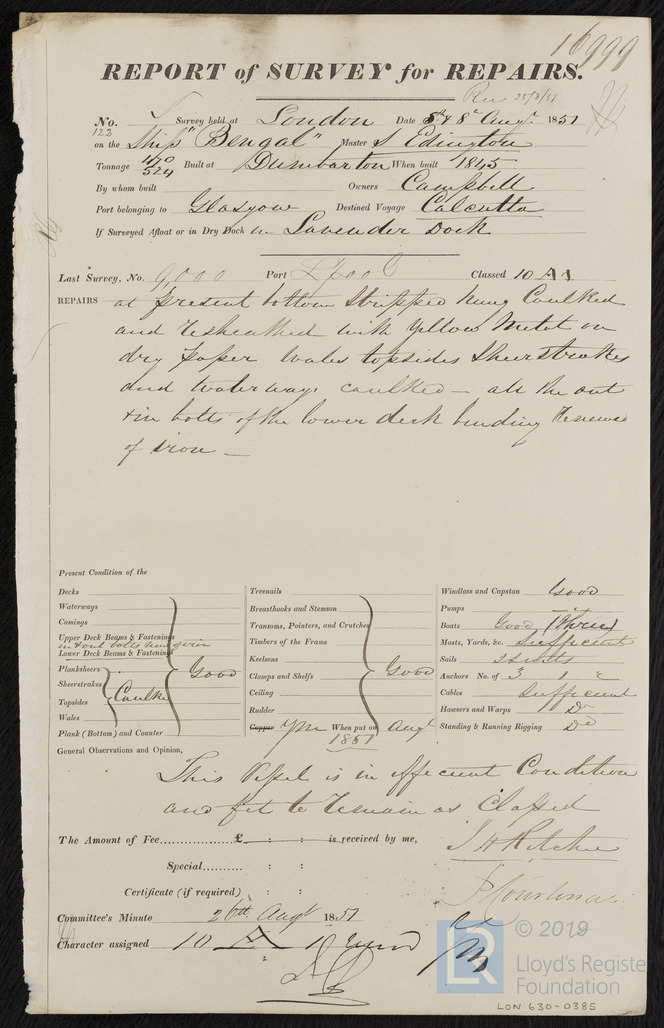 16999
REPORT of SURVEY for REPAIRS.
Rec 25/8/51
No. Survey held at London Date 5th & 8th Augt. 1851
123
on the Ship "Bengal" Master J Edington
Tonnage 470 / 524 Built at Dumbarton When built 1845
By whom built Owners Campbell
Port belonging to Glasgow Destined Voyage Calcutta
If Surveyed Afloat or in Dry Dock in Lavender Dock
Last Survey, No. 9,000 Port Lpool Classed 10 A1
REPAIRS at present bottom stripped hung Caulked
and resheathed with Yellow Metal on
dry paper Wales topsides Sheerstrakes
and waterways caulked — all the out
& in bolts of the lower deck binding renewed
of iron —
Present Condition of the
Decks
Waterways
Comings
Upper Deck Beams & Fastenings
in & out bolts new of iron
Lower Deck Beams & Fastenings
Planksheers Good
Sheerstrakes
Topsides Caulked
Wales
Plank (Bottom) and Counter
Treenails
Breasthooks and Stemson
Transoms, Pointers, and Crutches
Timbers of the Frame
Keelsons
Clamps and Shelfs Good
Ceiling
Rudder
Copper YM When put on Augt
1851
Windlass and Capstan Good
Pumps
Boats Good (Three)
Masts, Yards, &c. Sufficient
Sails 2 Suits
Anchors No. of 3 1 2
Cables Sufficient
Hawsers and Warps Do
Standing & Running Rigging Do
General Observations and Opinion,
This Vessel is in efficient Condition
and fit to remain as Classed
The Amount of Fee £ : : is received by me, J H Ritchie
Special : :
Certificate (if required) : :
Committee's Minute 26th Augt 1851
Character assigned 10 A 1
© 2019
LR
Lloyd's Register
Foundation
LON 630-0385